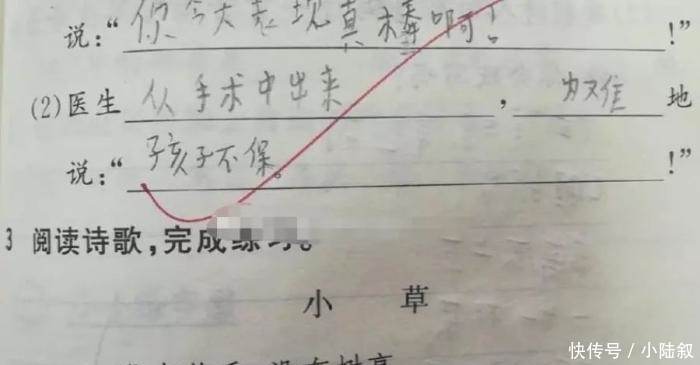 说:“你今天表现真棒啊!!”
(2)医生从手术中出来,为难地
说:“孩子不保。!”
3 阅读诗歌,完成练习。
小草
快传号/小陆叙